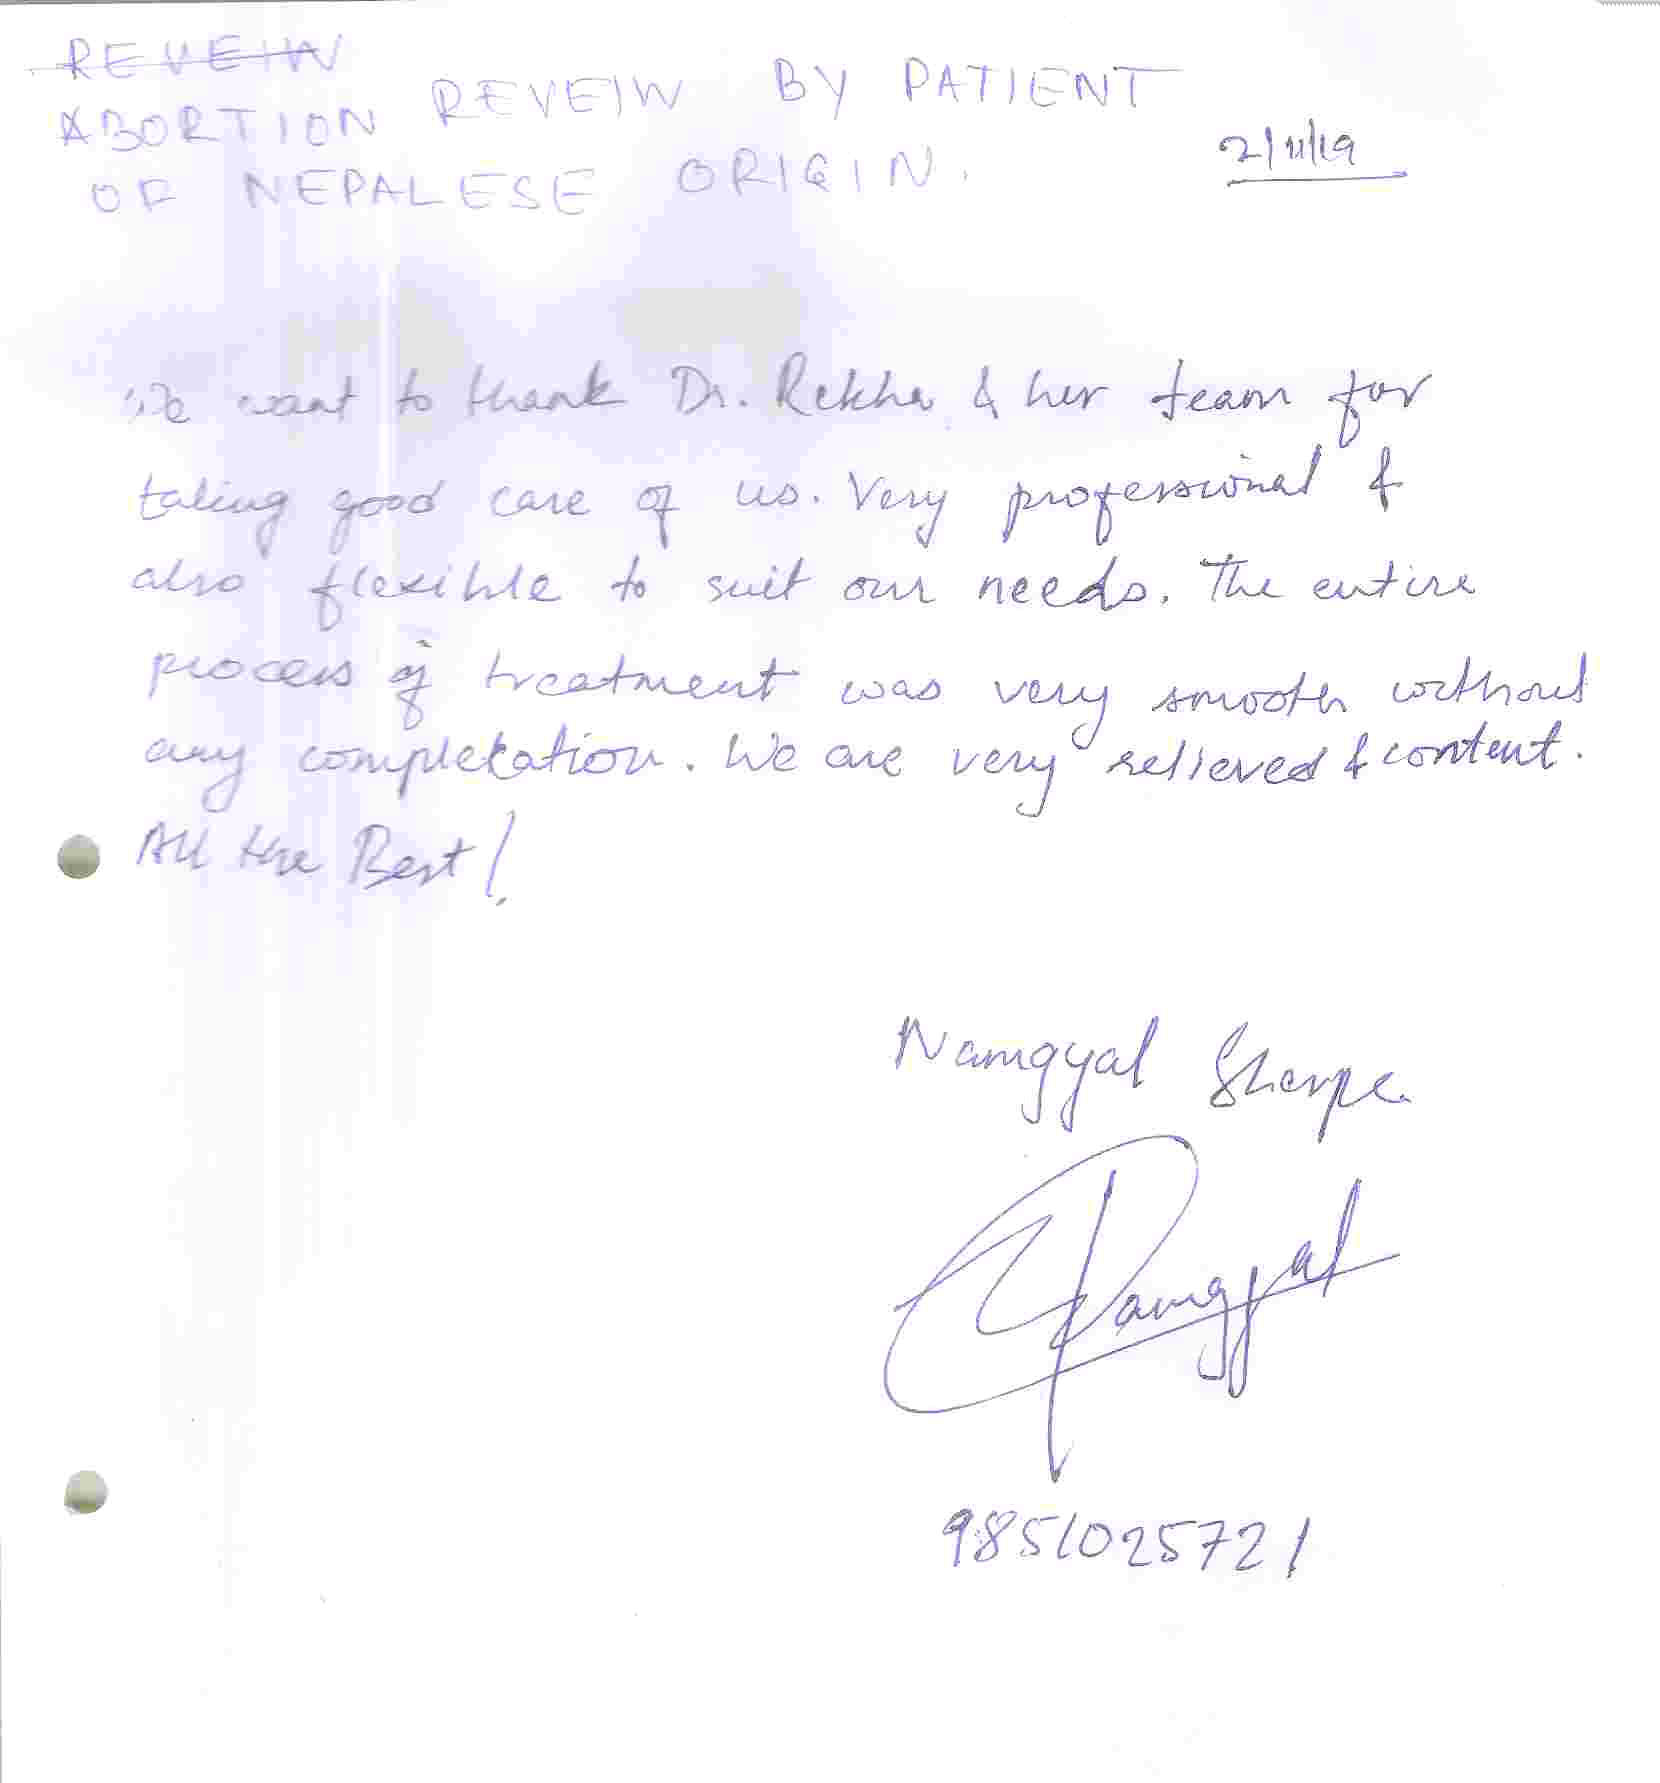 REVEIW
ABORTION REVEIW BY PATIENT
OF NEPALESE ORIGIN.
2/11/19
We want to thank Dr. Rekha & her team for
taking good care of us. Very professional &
also flexible to suit our needs. The entire
process of treatment was very smooth without
any complekation. We are very relieved & content.
All the Best!
Namgyal Sherpa
Namgyal
9851025721